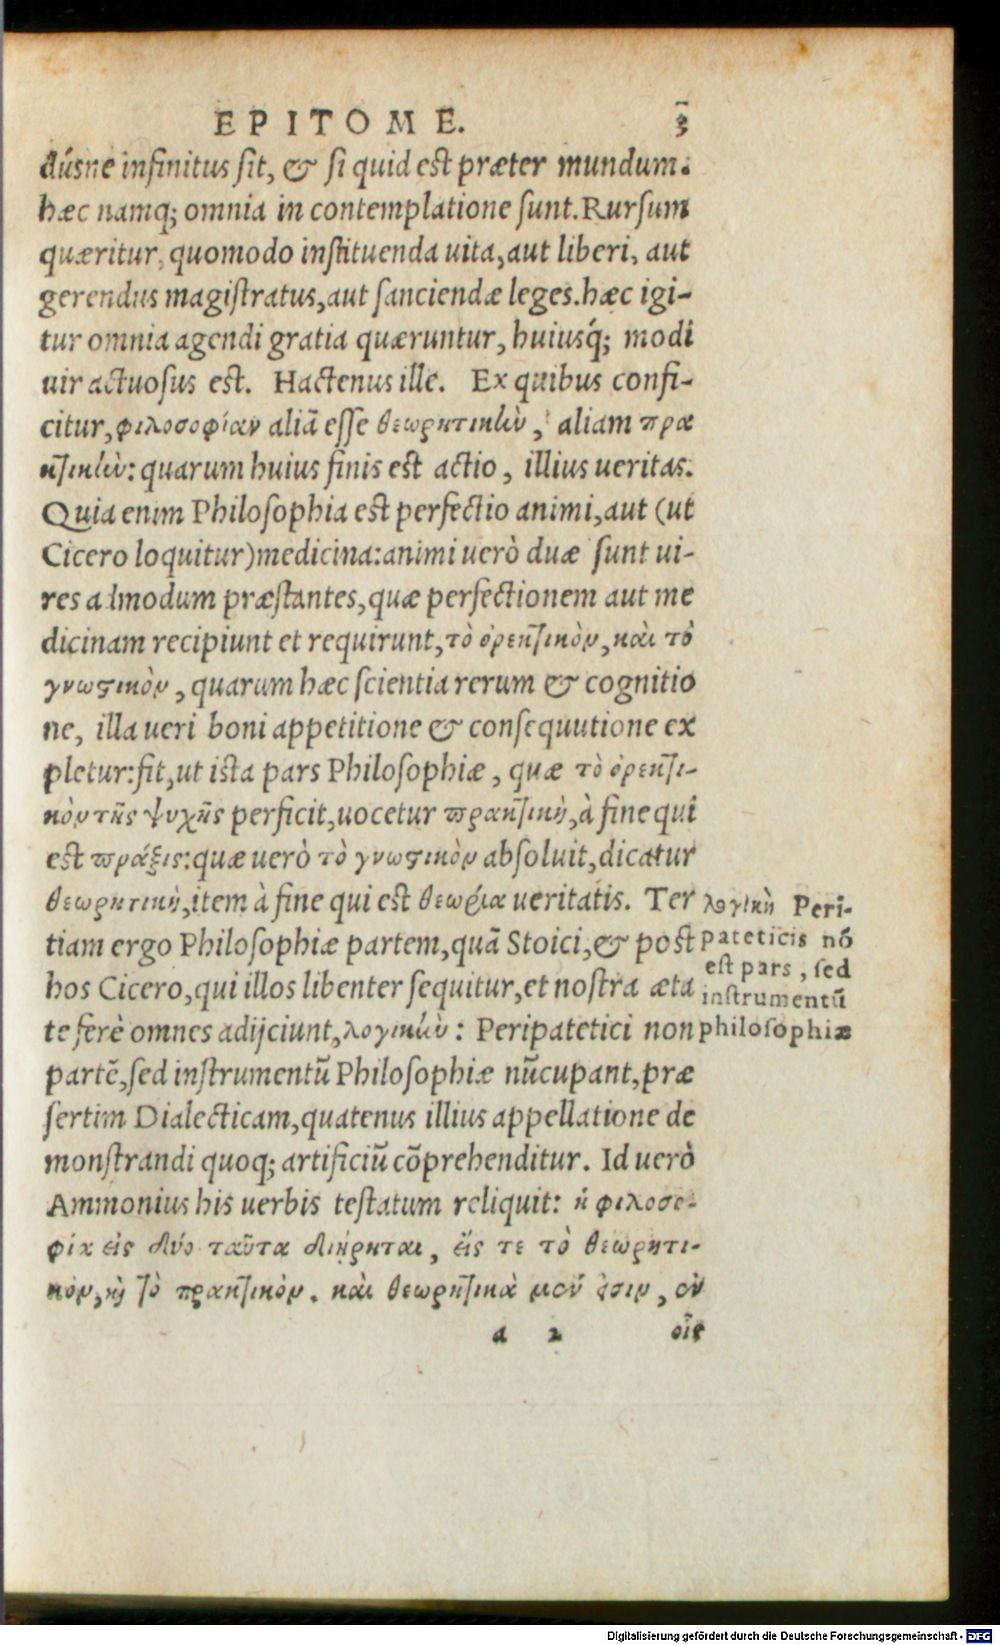 EPITOME. 3
dúsne infinitus sit, & si quid est præter mundum.
hæc namq; omnia in contemplatione sunt. Rursum
quæritur, quomodo instituenda uita, aut liberi, aut
gerendus magistratus, aut sanciendæ leges. hæc igi-
tur omnia agendi gratia quæruntur, huiusq́; modi
uir actuosus est. Hactenus ille. Ex quibus confi-
citur, φιλοσοφίαν aliã esse θεωρητικὼ, aliam πρα
κτικὼ: quarum huius finis est actio, illius ueritas.
Quia enim Philosophia est perfectio animi, aut (ut
Cicero loquitur) medicina: animi uerò duæ sunt ui-
res admodum præstantes, quæ perfectionem aut me
dicinam recipiunt et requirunt, τὸ ὀρεκτικὸν, καὶ τὸ
γνωστικὸν, quarum hæc scientia rerum & cognitio
ne, illa ueri boni appetitione & consequutione ex
pletur: fit, ut ista pars Philosophiæ, quæ τὸ ὀρεκτι-
κὸν τῆς ψυχῆς perficit, uocetur πρακτικὴ, à fine qui
est πράξις: quæ uerò τὸ γνωστικὸν absoluit, dicatur
θεωρητικὴ, item à fine qui est θεωρία ueritatis. Ter
tiam ergo Philosophiæ partem, quã Stoici, & post
hos Cicero, qui illos libenter sequitur, et nostra æta
te ferè omnes adijciunt, λογικὼ: Peripatetici non
partẽ, sed instrumentũ Philosophiæ nũcupant, præ
sertim Dialecticam, quatenus illius appellatione de
monstrandi quoq; artificiũ cõprehenditur. Id uerò
Ammonius his uerbis testatum reliquit: ἡ φιλοσο-
φία εἰς δύο ταῦτα διήρηται, εἴς τε τὸ θεωρητι-
κὸν, καὶ τὸ πρακτικὸν. καὶ θεωρητικὰ μοῦ ἐστιν, ὀν
a 2 οἷς
λογικὴ Peri-
pateticis nõ
est pars, sed
instrumentũ
philosophiæ
Digitalisierung gefördert durch die Deutsche Forschungsgemeinschaft - DFG